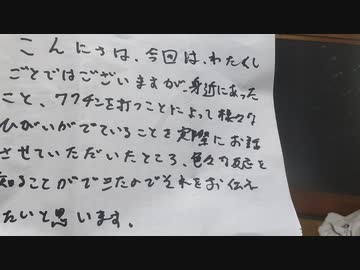 こんにちは、今回は、わたくし
ごとではございますが、身近にあった
こと、ワクチンを打つことによって様々な
ひがいがでていることを実際にお話
させていただいたところ、色々な反応を
知ることができたのでそれをお伝え
たいと思います。